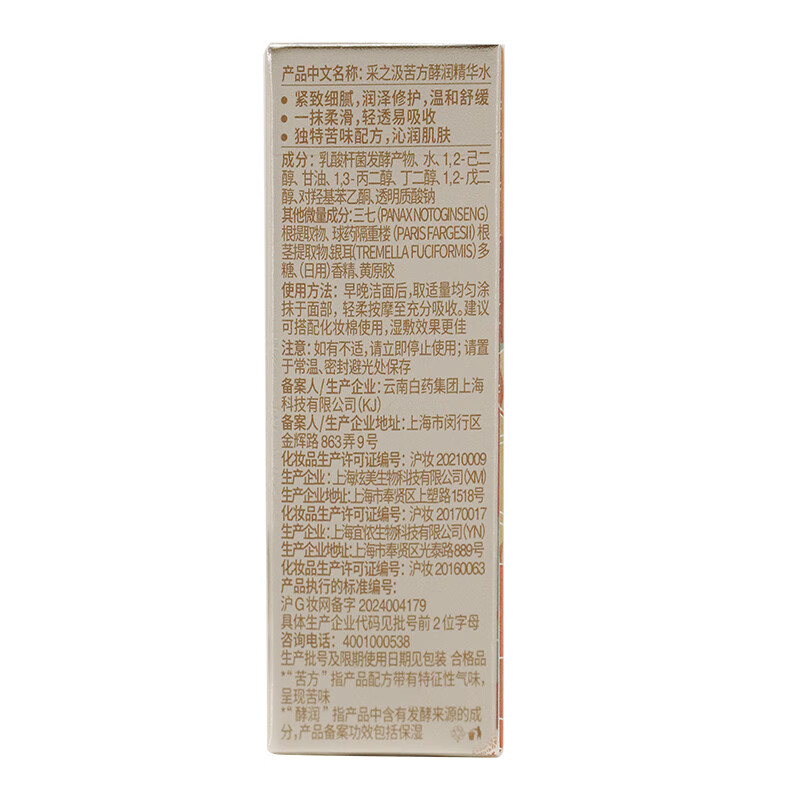 产品中文名称：采之汲苦方酵润精华水
• 紧致细腻，润泽修护，温和舒缓
• 一抹柔滑，轻透易吸收
• 独特苦味配方，沁润肌肤
成分：乳酸杆菌发酵产物、水、1,2-己二
醇、甘油、1,3-丙二醇、丁二醇、1,2-戊二
醇、对羟基苯乙酮、透明质酸钠
其他微量成分：三七（PANAX NOTOGINSENG）
根提取物、球药隔重楼（PARIS FARGESII）根
茎提取物、银耳（TREMELLA FUCIFORMIS）多
糖、（日用）香精、黄原胶
使用方法：早晚洁面后，取适量均匀涂
抹于面部，轻柔按摩至充分吸收。建议
可搭配化妆棉使用，湿敷效果更佳
注意：如有不适，请立即停止使用；请置
于常温、密封避光处保存
备案人/生产企业：云南白药集团上海
科技有限公司（KJ）
备案人/生产企业地址：上海市闵行区
金辉路863弄9号
化妆品生产许可证编号：沪妆20210009
生产企业：上海炫美生物科技有限公司（XM）
生产企业地址：上海市奉贤区上塑路1518号
化妆品生产许可证编号：沪妆20170017
生产企业：上海宜侬生物科技有限公司（YN）
生产企业地址：上海市奉贤区光泰路889号
化妆品生产许可证编号：沪妆20160063
产品执行的标准编号：
沪G妆网备字2024004179
具体生产企业代码见批号前2位字母
咨询电话：4001000538
生产批号及限期使用日期见包装 合格品
*“苦方”指产品配方带有特征性气味，
呈现苦味
*“酵润”指产品中含有发酵来源的成
分，产品备案功效包括保湿